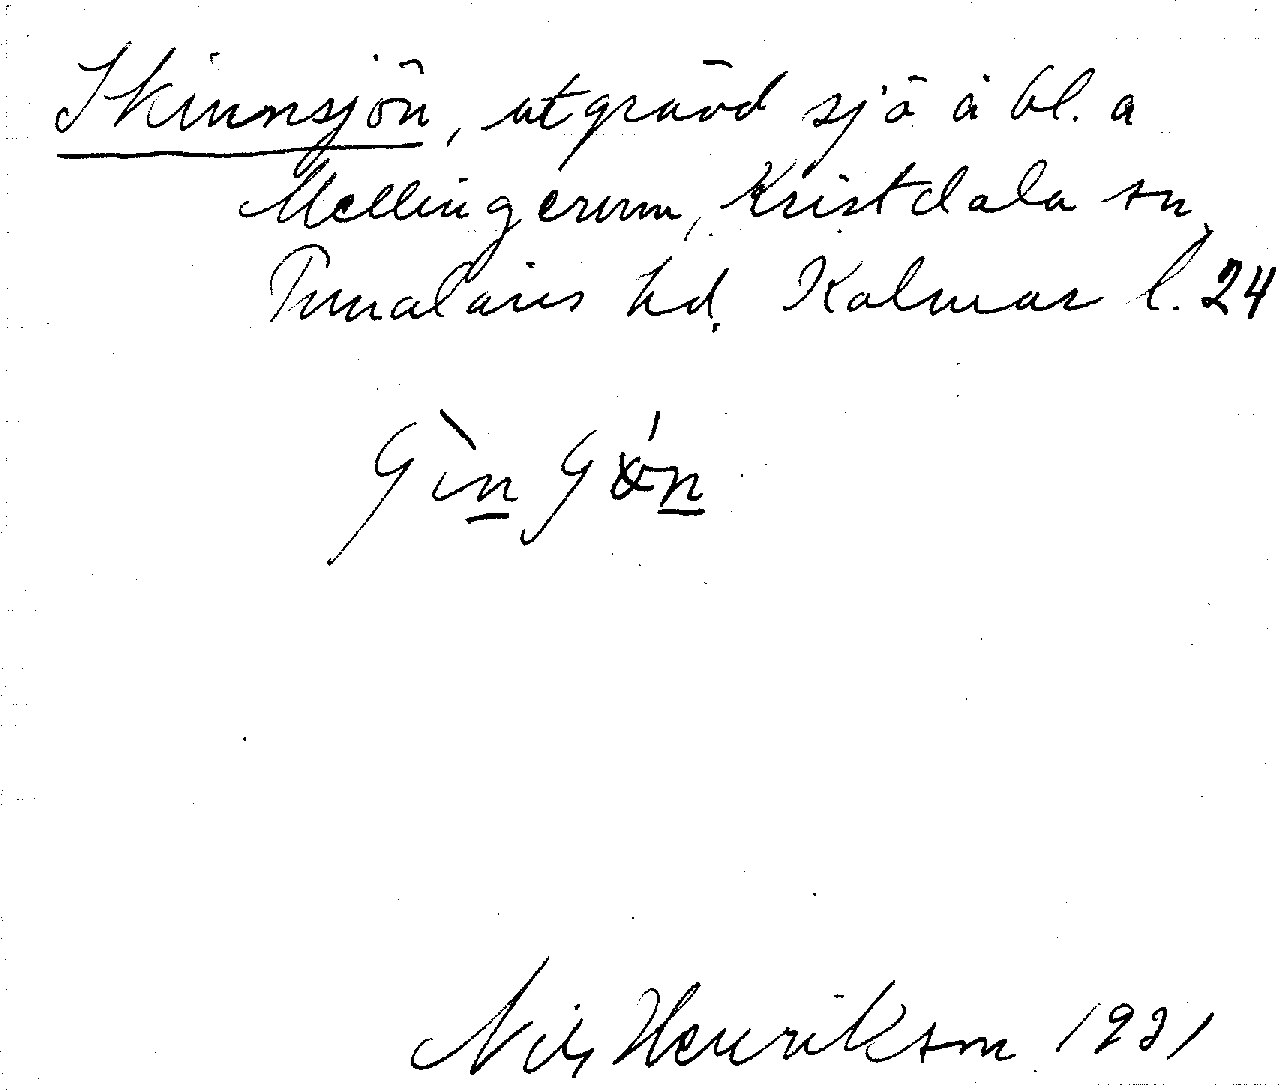 Skinnsjön, utgrävd sjö å bl. a
Mellingerum, Kristdala sn,
Tunaläns hd. Kalmar l. 24
Nils Henrikson 1931